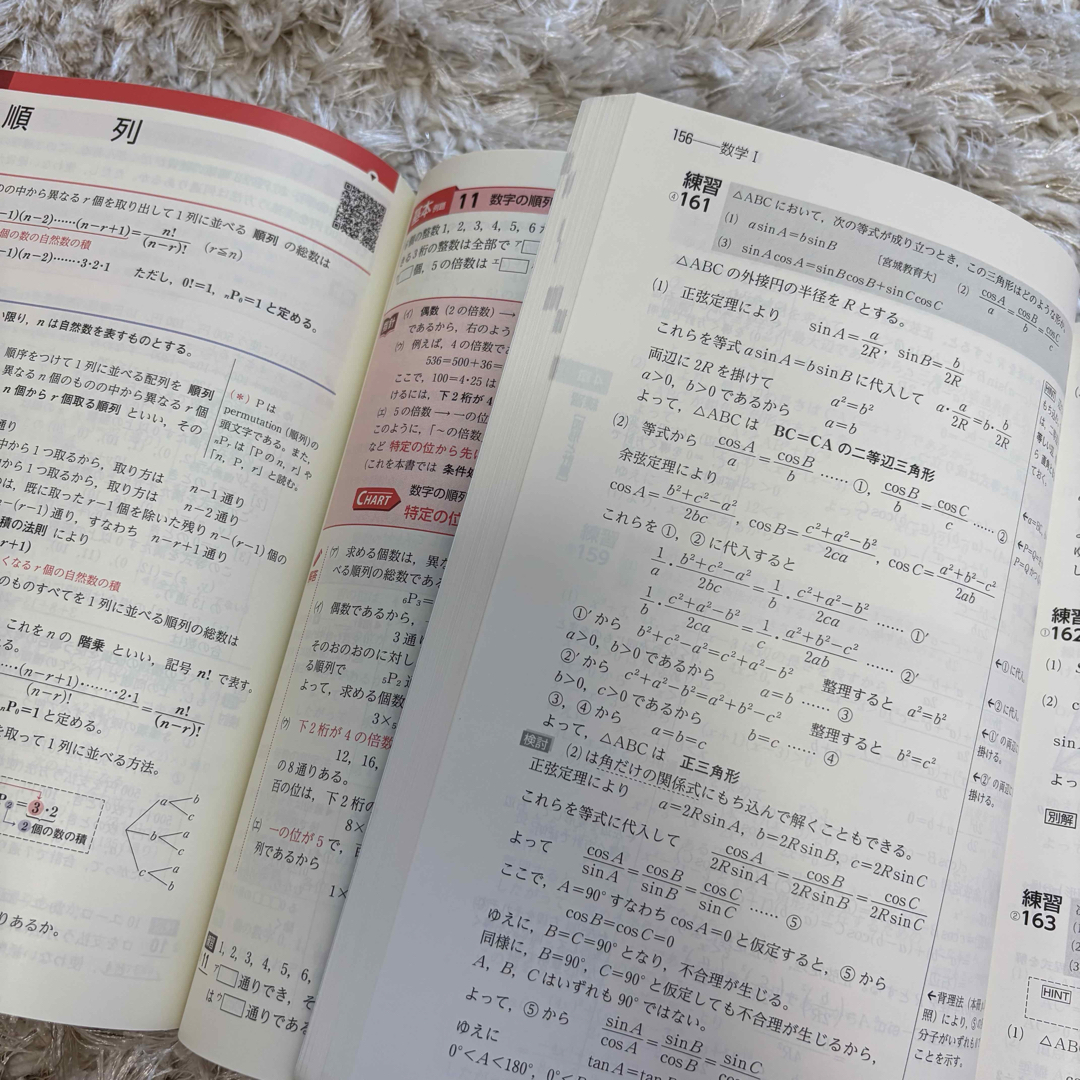 順 列
の中から異なる r 個を取り出して1列に並べる 順列 の総数は
-1)(n-2)……(n-r+1)=n!/(n-r)! (r≦n)
個の数の自然数の積
-1)(n-2)……3・2・1 ただし, 0!=1, nP0=1 と定める。
い限り, n は自然数を表すものとする。
順序をつけて1列に並べる配列を 順列
異なる n 個のものの中から異なる r 個
n 個から r 個取る順列 といい, その
(*) P は
permutation (順列)の
頭文字である。また,
nPr は「Pの n, r」や
「n, P, r」と読む。
通り
中から1つ取るから, 取り方は n-1 通り
から1つ取るから, 取り方は n-2 通り
は, 既に取った r-1 個を除いた残り n-(r-1) 個の
-(r-1) 通り, すなわち n-r+1 通り
積の法則 により
r+1)
くなる r 個の自然数の積
のものすべてを1列に並べる順列の総数は
これを n の 階乗 といい, 記号 n! で表す。
……(n-r+1)………2・1/(n-r)!=n!/(n-r)!
nP0=1 と定める。
を取って1列に並べる方法。
=3・2
2個の数の積
a b c
b a c
c a b
りあるか。
基本 例題 11 数字の順列
の整数 1, 2, 3, 4, 5, 6
る3桁の整数は全部で ア
個, 5 の倍数は エ
(イ) 偶数 (2 の倍数)
であるから, 右のよう
(ウ) 例えば, 4 の倍数で
536=500+36=
ここで, 100=4・25 は
けるには, 下2桁が 4
(エ) 5 の倍数 → 一の位
このように, 「～の倍数
など 特定の位から先に
(これを本書では 条件処
CHART 数字の順列
特定の位
(ア) 求める個数は, 異な
べる順列の総数である
6P3=
(イ) 偶数であるから,
3 通り
そのおのおのに対し
る順列で
5P2 通
よって, 求める個数
3×5
(ウ) 下2桁が4の倍数
12, 16,
の8通りある。
百の位は, 下2桁の
8×
(エ) 一の位が5で, 百
列であるから
1×
11 1, 2, 3, 4, 5, 6,
ア 通りでき, そ
は ウ 通りである
156――数学Ⅰ
練習 ④161 △ABC において, 次の等式が成り立つとき, この三角形はどのような形か
(1) a sin A=b sin B (2) cos A/a=cos B/b=cos C/c
(3) sin A cos A=sin B cos B+sin C cos C [宮城教育大]
△ABC の外接円の半径を R とする。
(1) 正弦定理により sin A=a/2R, sin B=b/2R
これらを等式 a sin A=b sin B に代入して a・a/2R=b・b/2R
両辺に 2R を掛けて a²=b²
a>0, b>0 であるから a=b
よって, △ABC は BC=CA の二等辺三角形
(2) 等式から cos A/a=cos B/b …… ①, cos B/b=cos C/c …… ②
余弦定理により
cos A=b²+c²-a²/2bc, cos B=c²+a²-b²/2ca, cos C=a²+b²-c²/2ab
これらを ①, ② に代入すると
1/a・b²+c²-a²/2bc=1/b・c²+a²-b²/2ca …… ①′
1/b・c²+a²-b²/2ca=1/c・a²+b²-c²/2ab …… ②′
①′ から b²+c²-a²=c²+a²-b² 整理すると a²=b²
a>0, b>0 であるから a=b …… ③
②′ から c²+a²-b²=a²+b²-c² 整理すると b²=c²
b>0, c>0 であるから b=c …… ④
③, ④ から a=b=c
よって, △ABC は 正三角形
検討 (2) は角だけの関係式にもち込んで解くこともできる。
正弦定理により a=2R sin A, b=2R sin B, c=2R sin C
これらを等式に代入して cos A/2R sin A=cos B/2R sin B=cos C/2R sin C
よって cos A/sin A=cos B/sin B=cos C/sin C …… ⑤
ここで, A=90° すなわち cos A=0 と仮定すると, ⑤ から
cos B=cos C=0
ゆえに, B=C=90° となり, 不合理が生じる。
同様に, B=90°, C=90° と仮定しても不合理が生じるから,
A, B, C はいずれも 90° ではない。
よって, ⑤ から sin A/cos A=sin B/cos B=sin C/cos C
ゆえに tan A=tan
0°<A<180°, 0°<
←①に代入。
←②に代入
←①′の両辺に
掛ける。
←②′の両辺に
掛ける。
←背理法 (本冊
照) により, ⑤の
分子がいずれも
ことを示す。
練習
①162
(1)
(2)
sin
よっ
別解
練習
②163
HINT
(1) △ABC